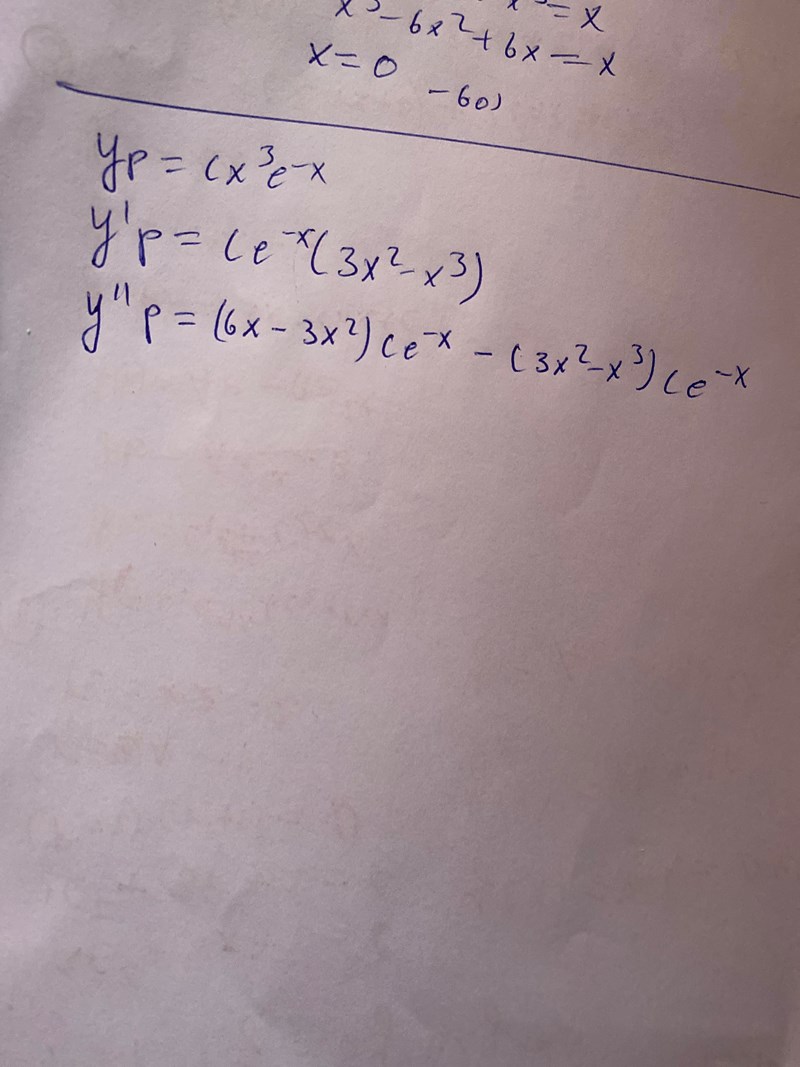 x³ = x
x³ - 6x² + 6x = x
x = 0 - 60)
yp = cx³e^-x
y'p = ce^-x(3x² - x³)
y''p = (6x - 3x²)ce^-x - (3x² - x³)ce^-x